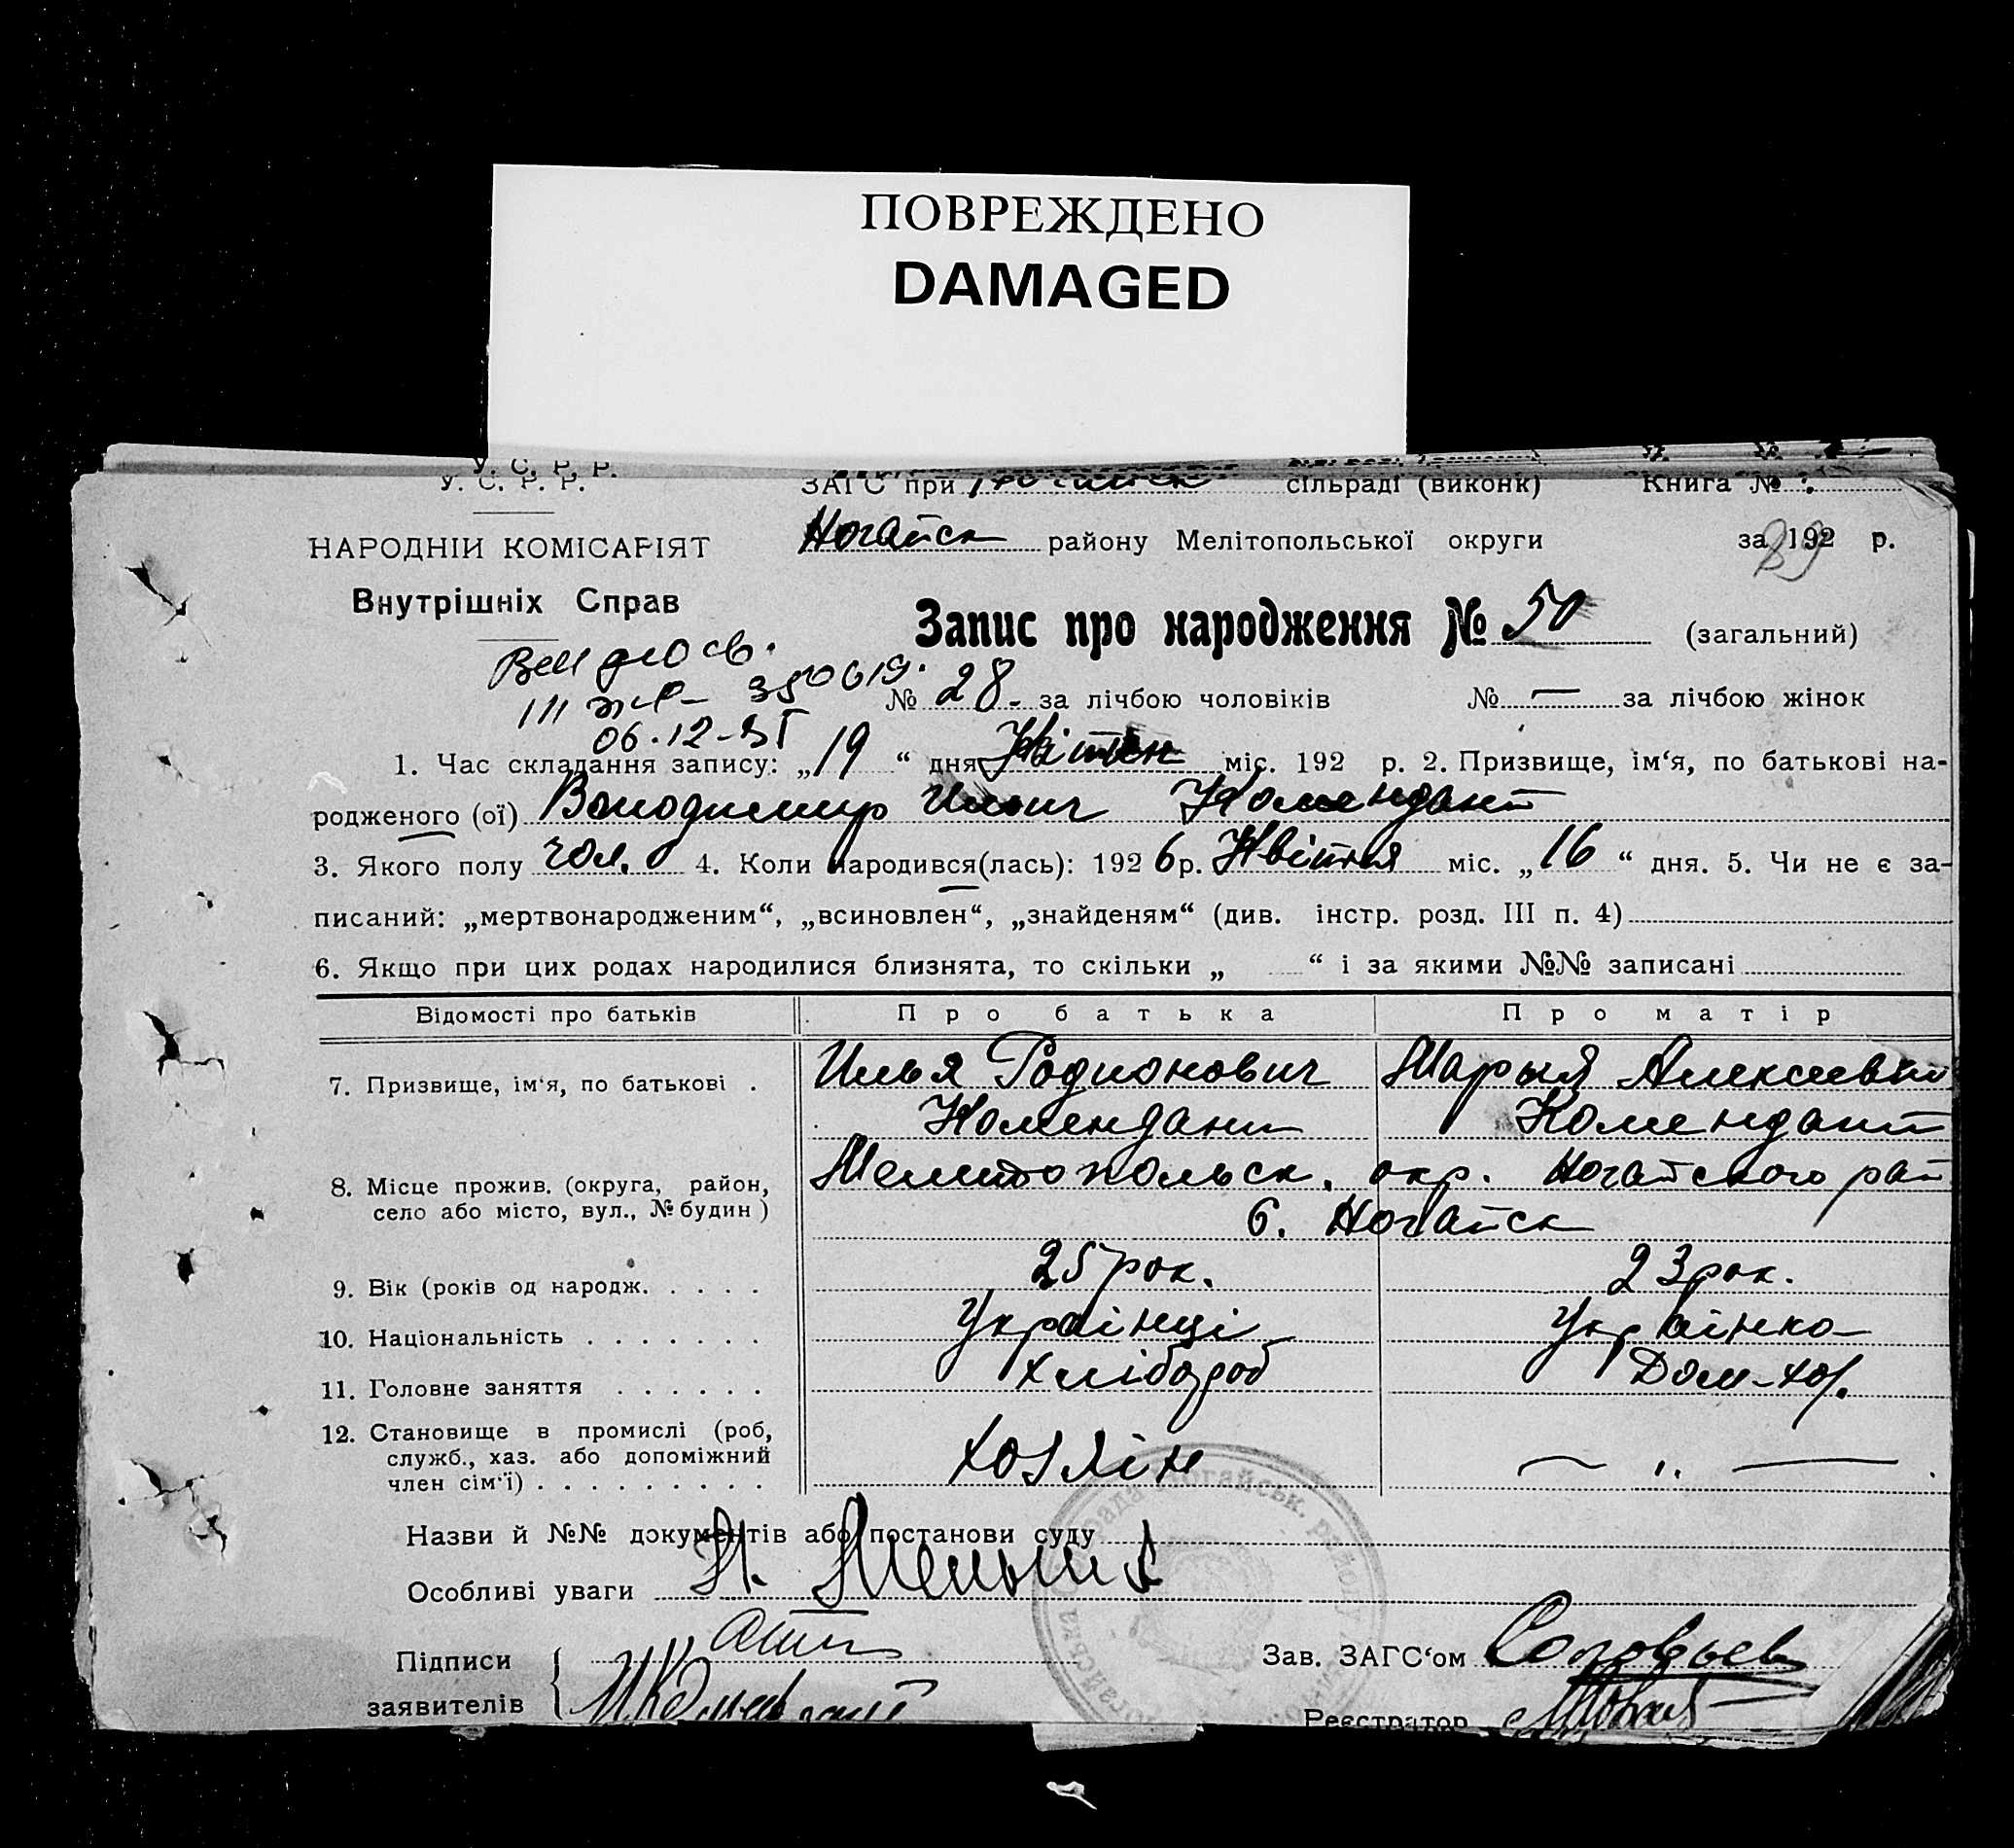 ПОВРЕЖДЕНО
DAMAGED
У. С. Р. Р.
У. С. Р. Р.
ЗАГС при Ногайск сільраді (виконк) Книга №
НАРОДНІЙ КОМІСАРІЯТ
Ногайск району Мелітопольської округи за 192 р.
Внутрішніх Справ
Запис про народження № 50 (загальний)
06.12-
№ 28. за лічбою чоловіків № — за лічбою жінок
1. Час складання запису: „19“ дня Квітен міс. 192 р. 2. Призвище, ім‘я, по батькові на-
родженого (ої) Володимир Ильич Комендант
3. Якого полу чол. 4. Коли народився(лась): 1926 р. Квітня міс. „16“ дня. 5. Чи не є за-
писаний: „мертвонародженим“, „всиновлен“, „знайденям“ (див. інстр. розд. III п. 4)
6. Якщо при цих родах народилися близнята, то скільки „ “ і за якими №№ записані
Відомості про батьків Про батька Про матір
7. Призвище, ім‘я, по батькові . Илья Родионович Марыя Алексеевн
Комендант Комендант
8. Місце прожив. (округа, район, село або місто, вул., № будин) Мелитопольск. окр. Ногайского рай
б. Ногайск
9. Вік (років од народж. . . . . 25 рок. 23 рок.
10. Національність . . . . . . . Українці Українка
11. Головне заняття . . . . . . Хлібороб Дом-хоз.
12. Становище в промислі (роб,
служб., хаз. або допоміжний
член сім‘ї) . . . . . . . . . Хозяін — „ —
Назви й №№ документів або постанови суду
Особливі уваги
Підписи
Зав. ЗАГС‘ом Соловьев
заявителів
Реєстратор